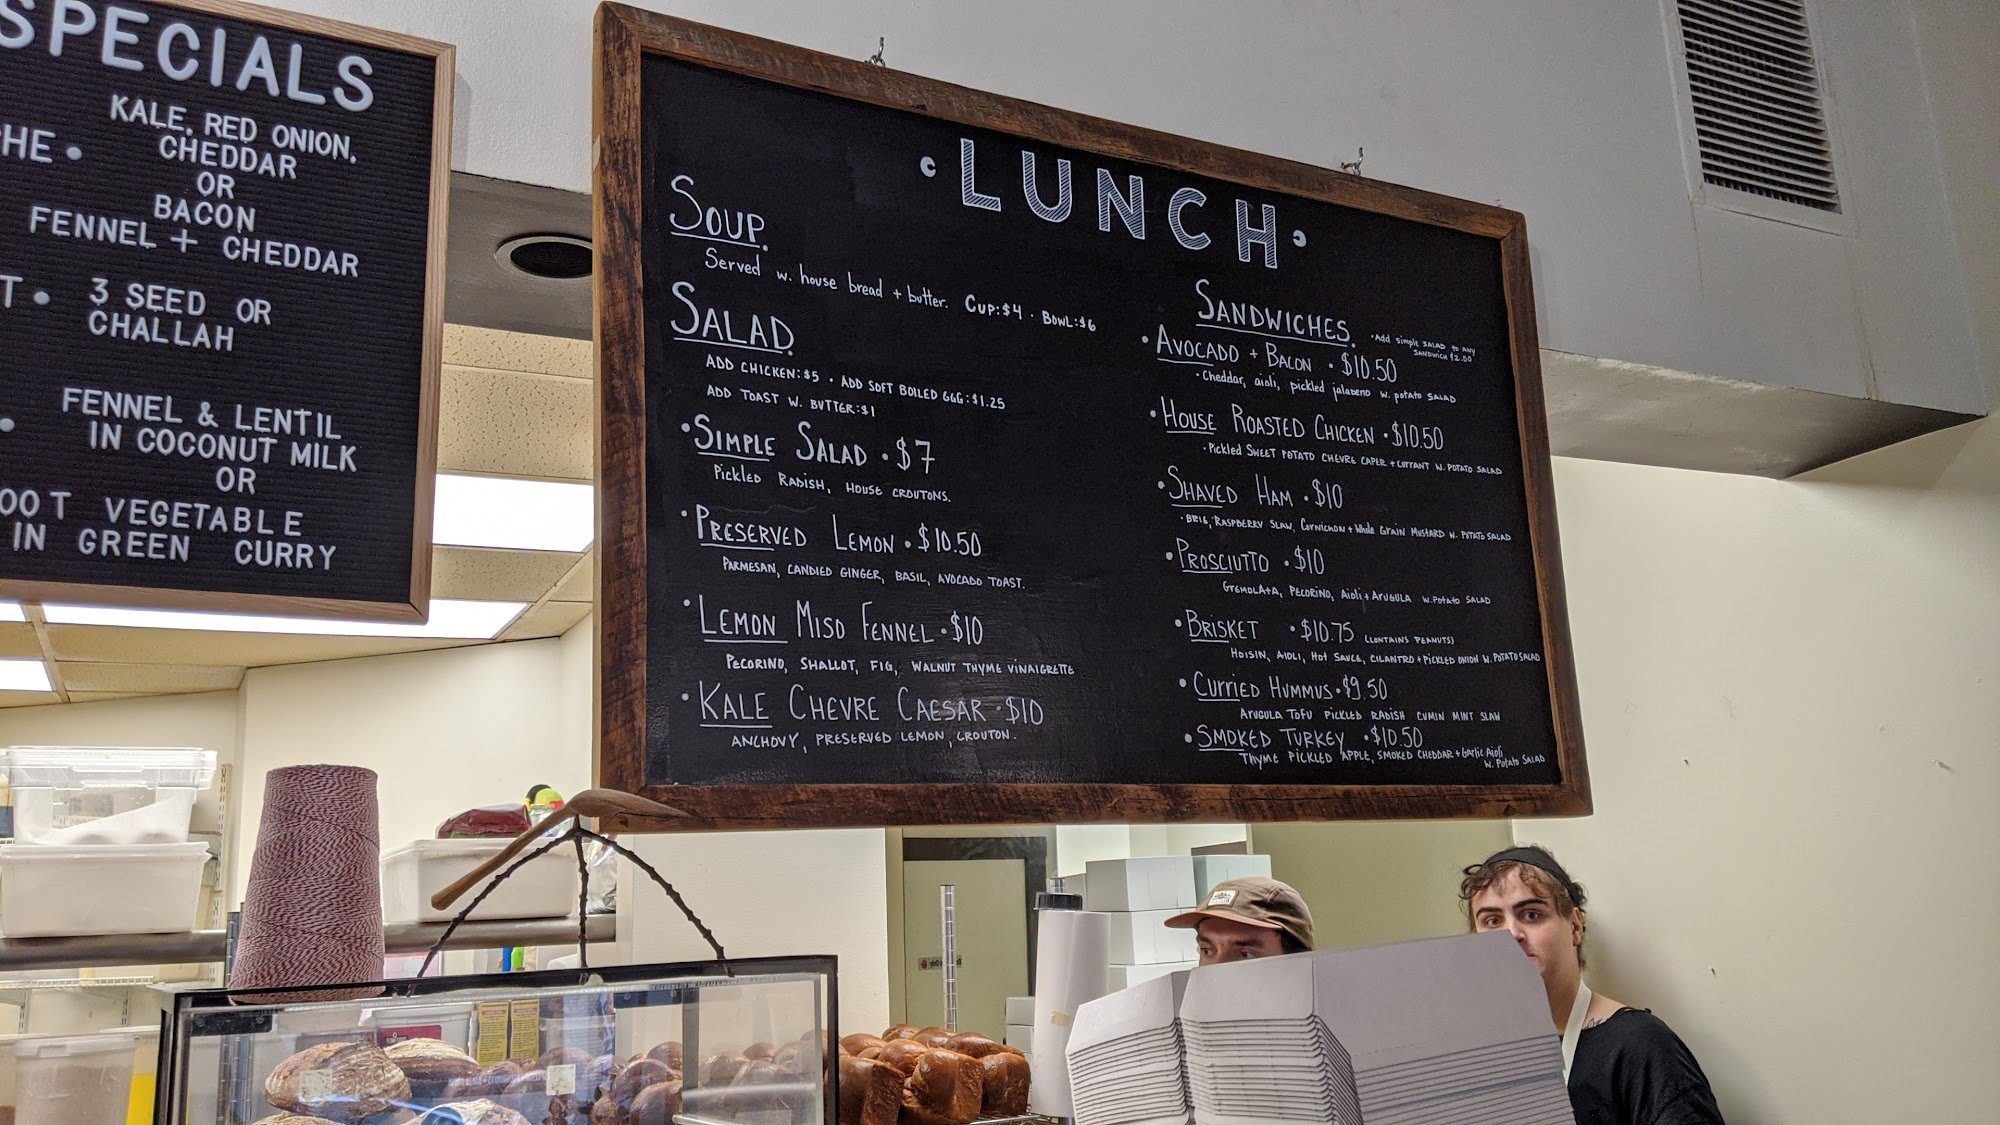 SPECIALS
KALE, RED ONION,
CHEDDAR
OR
BACON
FENNEL + CHEDDAR
HE •
T • 3 SEED OR
CHALLAH
• FENNEL & LENTIL
IN COCONUT MILK
OR
OOT VEGETABLE
IN GREEN CURRY
• LUNCH •
SOUP.
Served w. house bread + butter. CUP:$4 · BOWL:$6
SALAD.
ADD CHICKEN:$5 · ADD SOFT BOILED EGG:$1.25
ADD TOAST W. BUTTER:$1
• SIMPLE SALAD • $7
PICKLED RADISH, HOUSE CROUTONS.
• PRESERVED LEMON • $10.50
PARMESAN, CANDIED GINGER, BASIL, AVOCADO TOAST.
• LEMON MISO FENNEL • $10
PECORINO, SHALLOT, FIG, WALNUT THYME VINAIGRETTE
• KALE CHEVRE CAESAR • $10
ANCHOVY, PRESERVED LEMON, CROUTON.
SANDWICHES.
• Add simple SALAD to ANY
SANDWICH $2.00
• AVOCADO + BACON • $10.50
• Cheddar, aioli, pickled jalapeno w. potato SALAD
• HOUSE ROASTED CHICKEN • $10.50
• Pickled SWEET POTATO CHEVRE CAPER + CURRANT W. POTATO SALAD
• SHAVED HAM • $10
• BRIE, RASPBERRY SLAW, Cornichon + Whole Grain MUSTARD W. POTATO SALAD
• PROSCIUTTO • $10
GREMOLATA, PECORINO, Aioli + ARUGULA W. Potato SALAD
• BRISKET • $10.75 (CONTAINS PEANUTS)
HOISIN, AIOLI, HOT SAUCE, CILANTRO + PICKLED ONION W. POTATO SALAD
• CURRIED HUMMUS • $9.50
ARUGULA TOFU PICKLED RADISH CUMIN MINT SLAW
• SMOKED TURKEY • $10.50
THYME PICKLED APPLE, SMOKED CHEDDAR + Garlic Aioli
W. Potato SALAD